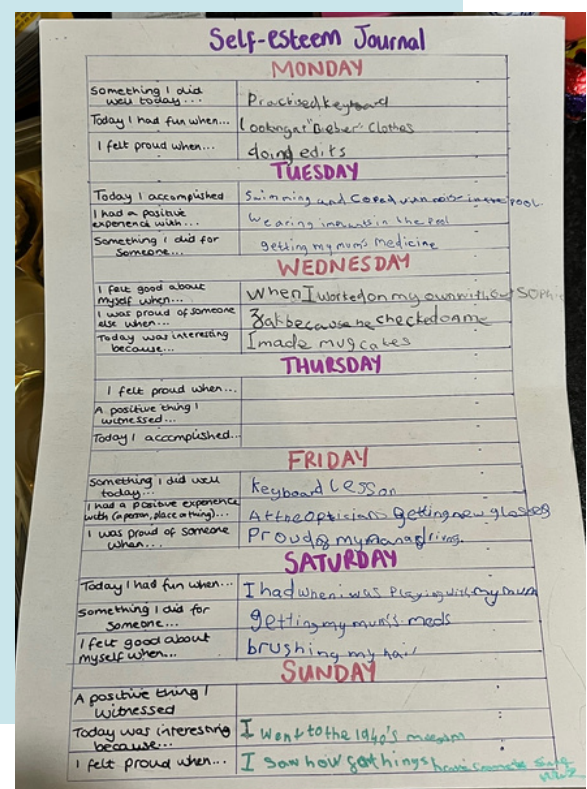 Self-esteem Journal
MONDAY
Something I did
well today... Practised keyboard
Today I had fun when... looking at "Bieber" clothes
I felt proud when... doing edits
TUESDAY
Today I accomplished Swimming and coped noise in the pool.
I had a positive
experience with... wearing in the pool
Something I did for
someone... getting my mum's medicine
WEDNESDAY
I felt good about
myself when... when I worked on my own without SOPHIE
I was proud of someone
else when... Zak because he checked on me
Today was interesting
because... I made mugcakes
THURSDAY
I felt proud when...
A positive thing I
witnessed...
Today I accomplished...
FRIDAY
Something I did well
today... keyboard Lesson
I had a positive experience
with (a person, place or thing)... At the opticians getting new glasses
I was proud of someone
when... Proud of my driving.
SATURDAY
Today I had fun when... I had when i was Playing with my mum
Something I did for
someone... getting my mum's meds
I felt good about
myself when... brushing my hair
SUNDAY
A positive thing I
witnessed
Today was interesting
because... I went to the 1940's museum
I felt proud when... I saw how far things have